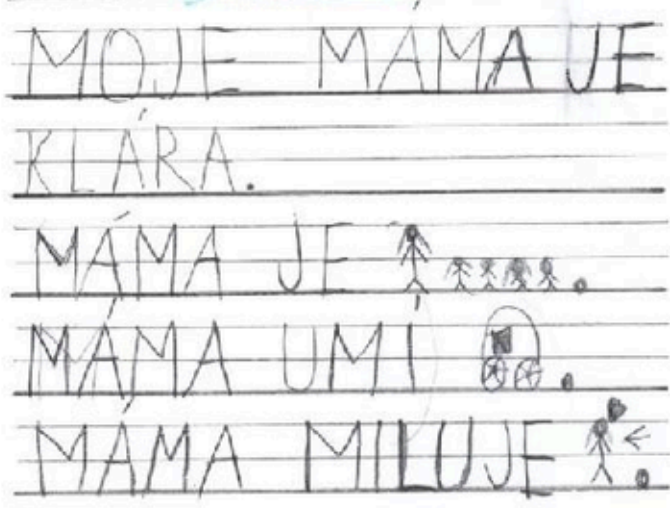 MOJE MÁMA JE
KLÁRA.
MÁMA JE .
MÁMA UMÍ .
MÁMA MILUJE .